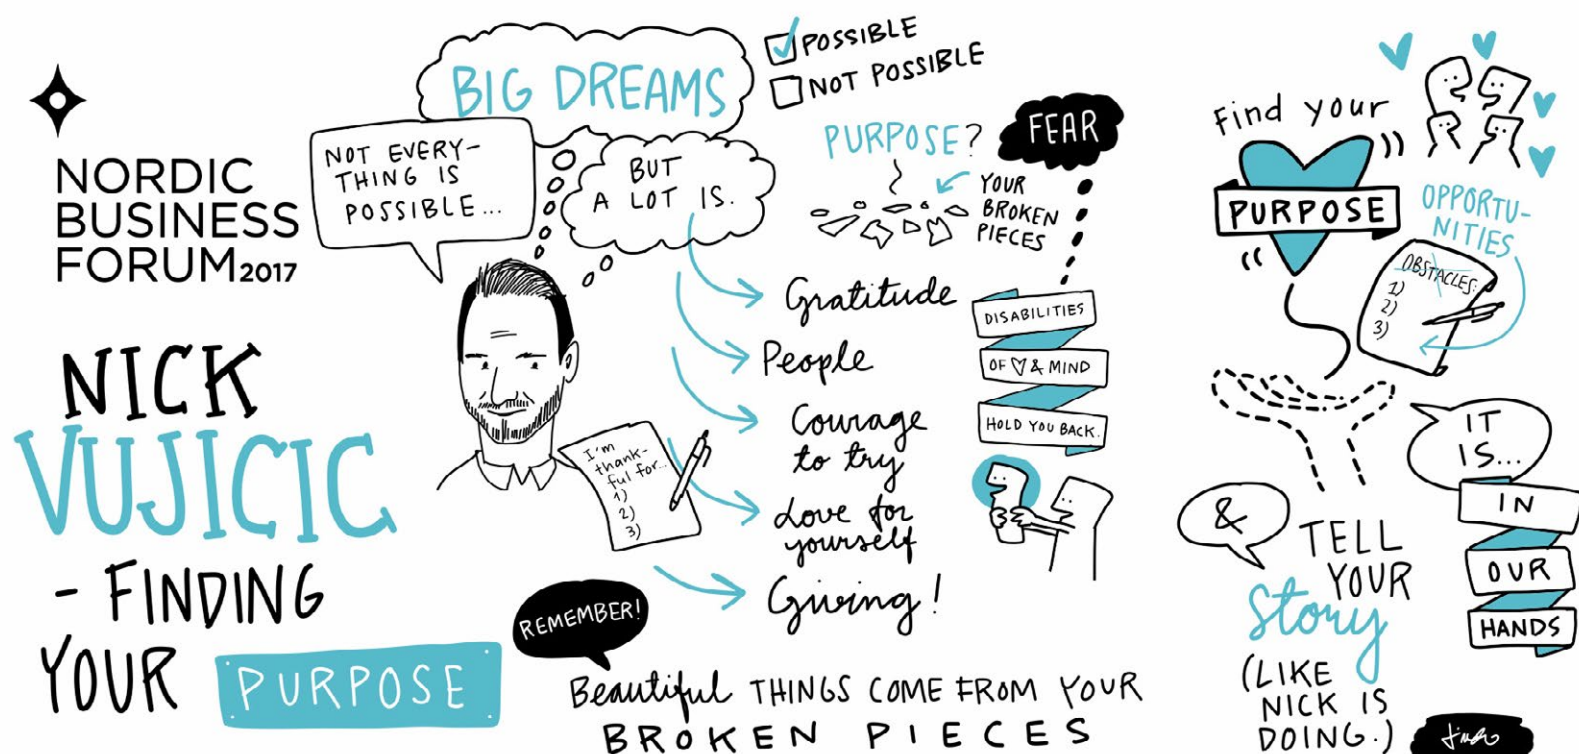 NORDIC
BUSINESS
FORUM 2017
NICK
VUJICIC
- FINDING
YOUR PURPOSE
BIG DREAMS
POSSIBLE
NOT POSSIBLE
NOT EVERY-
THING IS
POSSIBLE...
BUT
A LOT IS.
PURPOSE?
YOUR
BROKEN
PIECES
FEAR
Gratitude
People
Courage
to try
Love for
yourself
Giving!
I'm
thank-
ful for...
1)
2)
3)
DISABILITIES
OF ♡ & MIND
HOLD YOU BACK.
REMEMBER!
Beautiful THINGS COME FROM YOUR
BROKEN PIECES
Find your
PURPOSE
OPPORTU-
NITIES
OBSTACLES:
1)
2)
3)
IT
IS...
IN
OUR
HANDS
&
TELL
YOUR
Story
(LIKE
NICK IS
DOING.)